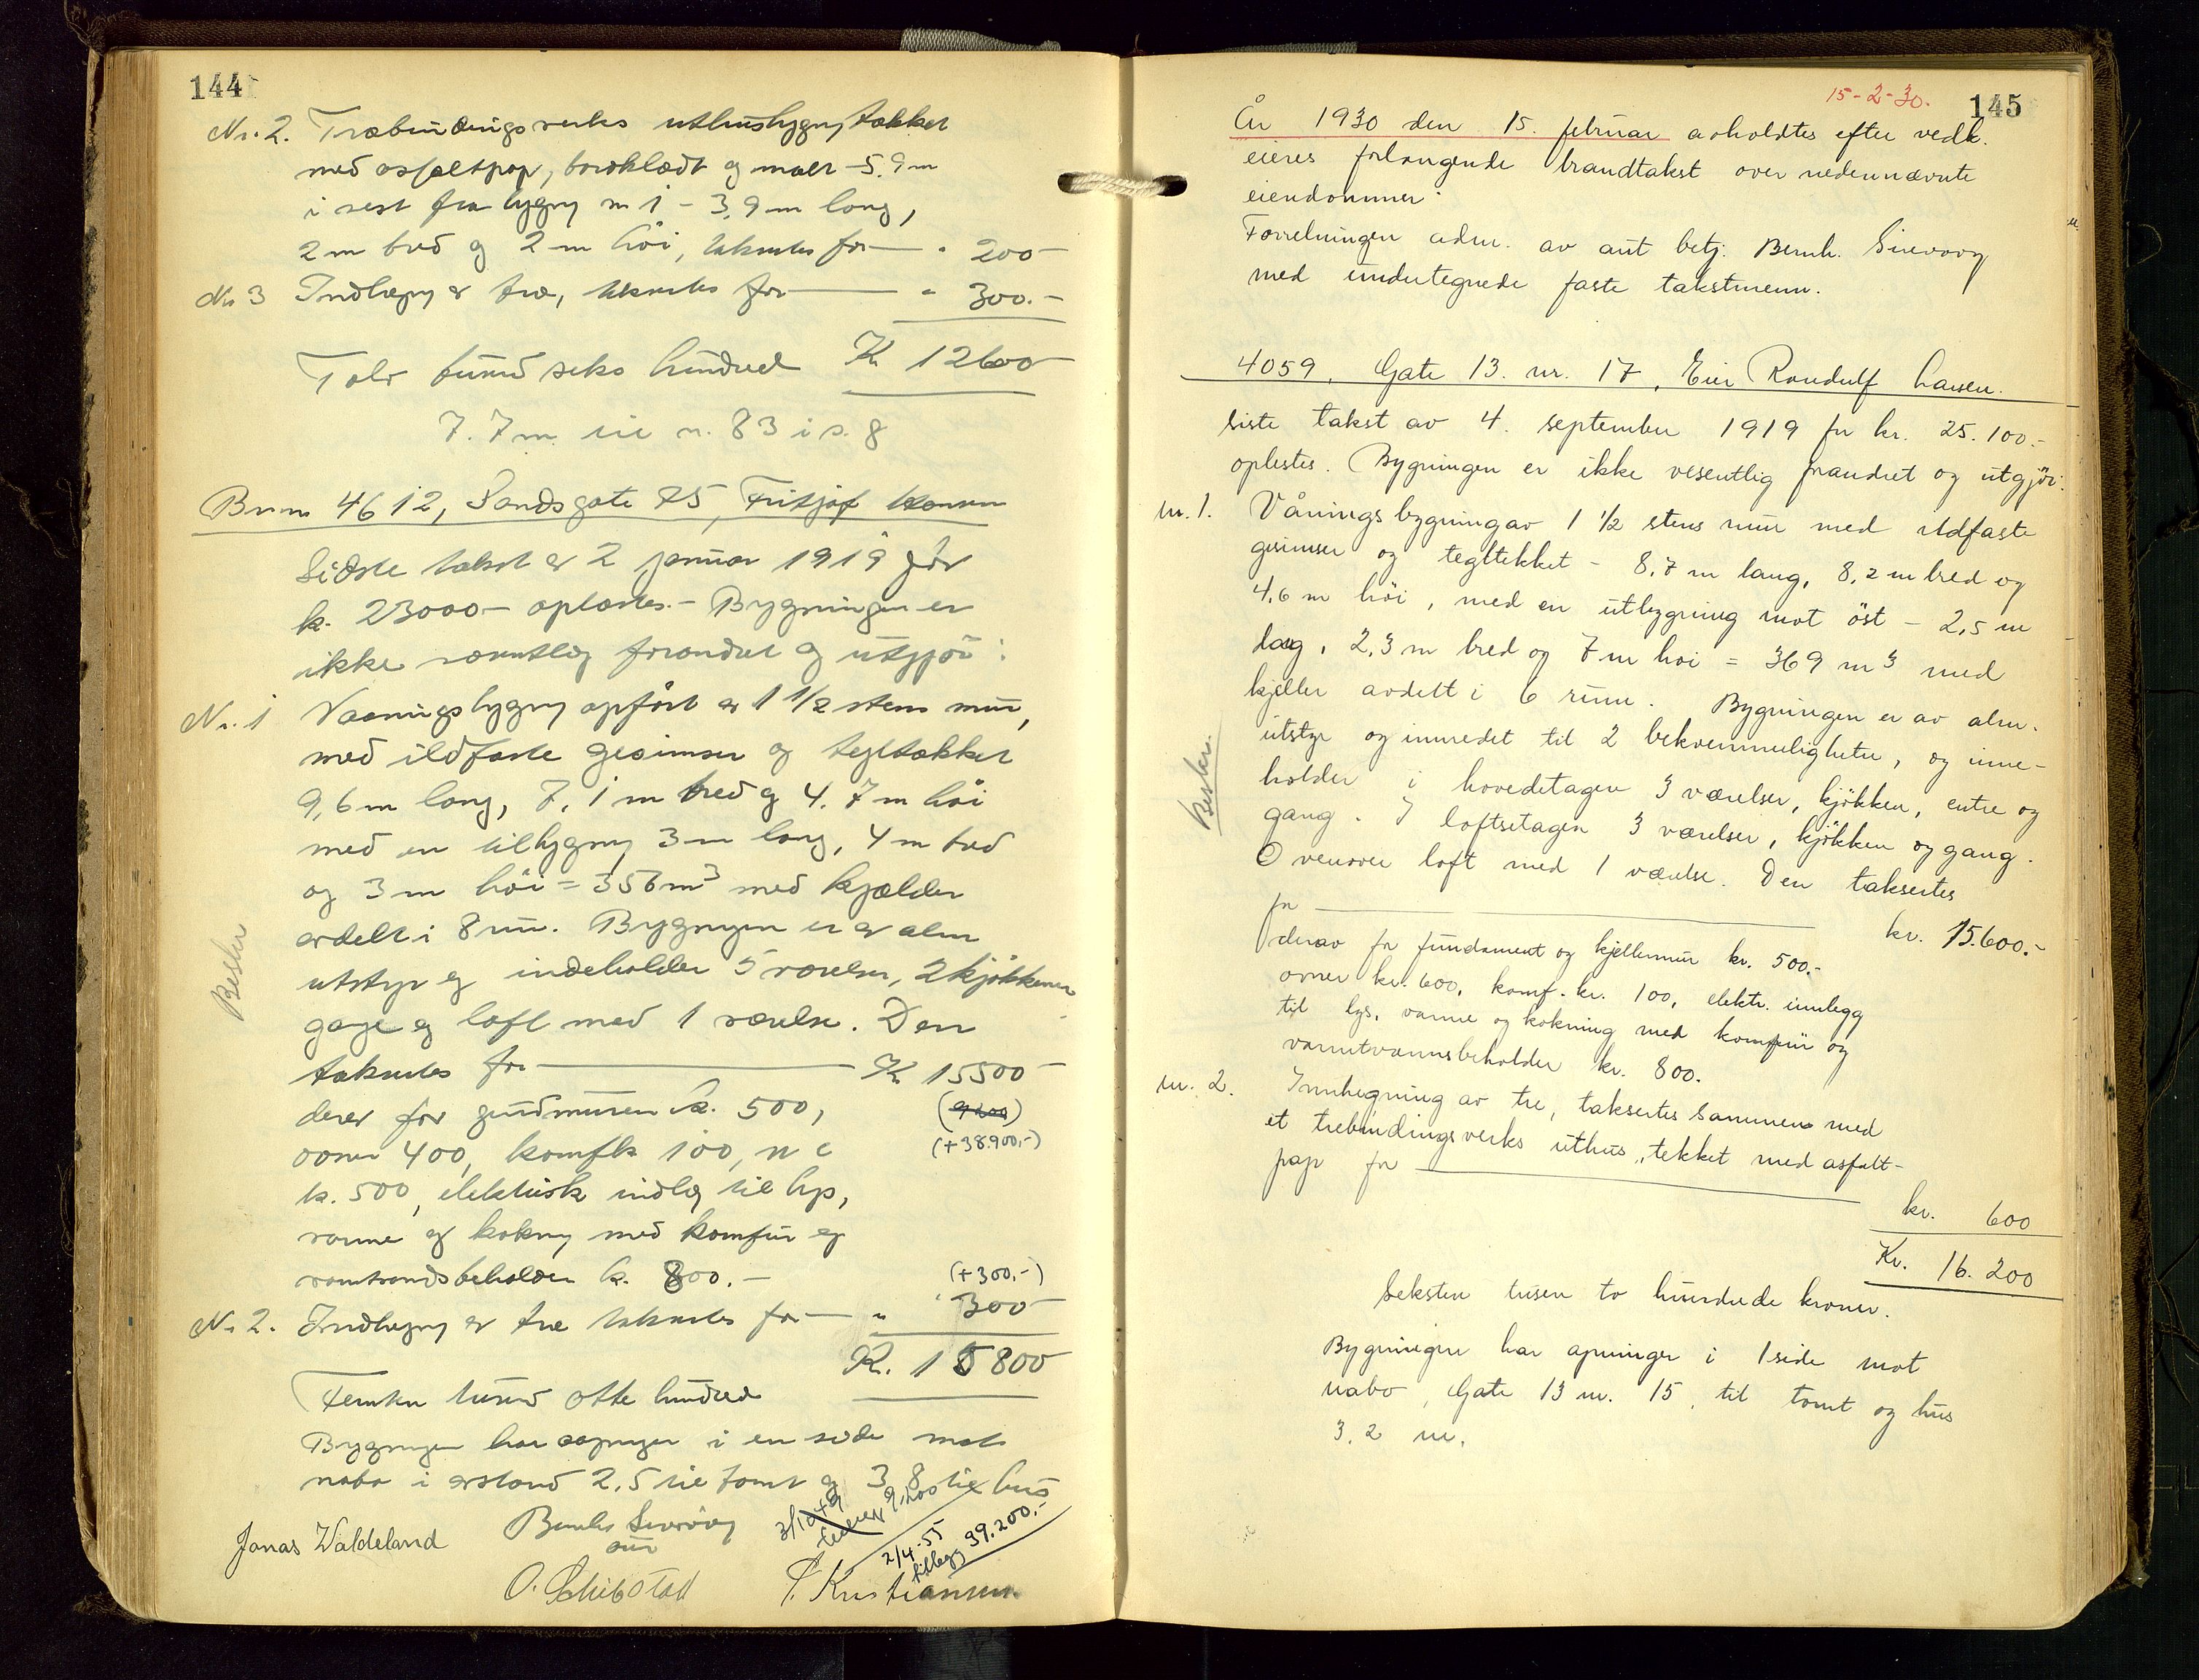 144
Nr. 2. Træbindingsverks uthusbygn, tækket
med asfaltpap, bordklædt og malt - 5.9 m
i vest fra bygn nr 1 - 3,9 m lang,
2 m bred og 2 m höi, takseres for — " 200 -
Nr 3 Indhegn av træ, takseres for — " 300.-
Kr 12600
Tolv tusind seks hundred
7.7 m til n. 83 i s. 8
Brnr 4612, Sandsgate 75, Fritjof
Sidste takst av 2 januar 1919 for
kr. 23000 - oplæstes. - Bygningen er
ikke væsentlig forandret og utgjör:
Nr. 1 Vaaningsbygn opfört av 1 1/2 stens mur,
med ildfaste gesimser og tegltækket
9,6 m lang, 7,1 m bred og 4.7 m höi
med en tilbygning 3 m lang, 4 m bred
og 3 m höi = 356 m3 med kjælder
avdelt i 8 rum. Bygningen er av alm
utstyr og indeholder 5 værelser, 2 kjökkener
gange og loft med 1 værelse. Den
takseres for — Kr 15500 -
derav for grundmuren kr. 500,
(9200)
ovner 400, komf kr 100, w c
(+38.900,-)
kr. 500, elektrisk indlæg til lys,
varme og kokning med komfür og
varmtvandsbeholder kr. 800. -
(+300,-)
Nr 2. Indhegn av træ takseres for — " 300 -
Kr. 15800
Femten tusind otte hundred
Bygningen har aapninger i en side mot
nabo i avstand 2,5 til tomt og 3,8 til hus
Besikt.
3/10 49
tillegg 9200
2/4-55
tillegg 39.200.-
Jonas Waldeland Bernh. Sirevåg
O. Schibstad P. Kristiansen
15-2-30.
145
År 1930 den 15. februar avholdtes efter vedk.
eieres forlangende brandtakst over nedennævnte
eiendommer:
Forretningen adm. av aut betj. Bernh. Sirevaag
med undertegnede faste takstmenn.
4059, Gate 13. nr. 17, Eier Randulf Larsen.
Siste takst av 4. september 1919 for kr. 25.100.-
oplestes. Bygningen er ikke vesentlig forandret og utgjör:
nr. 1. Våningsbygning av 1 1/2 stens mur med ildfaste
gesimser og tegltekket - 8,7 m lang, 8,2 m bred og
4,6 m höi, med en utbygning mot öst - 2,5 m
lang, 2,3 m bred og 7 m höi = 369 m3 med
kjeller avdelt i 6 rum. Bygningen er av alm.
utstyr og innredet til 2 bekvemmeligheter, og inne-
holder i hovedetagen 3 værelser, kjökken, entre og
gang. I loftsetagen 3 værelser, kjökken og gang.
Ovenover loft med 1 værelse. Den takseres
for — kr. 15.600.-
derav for fundament og kjellermur kr. 500.-
ovner kr. 600, komf. kr. 100, elektr. innlegg
til lys, varme og kokning med komfür og
varmtvannsbeholder kr. 800.
nr. 2. Innhegning av tre, takseres sammen med
et trebindingsverks uthus, tekket med asfalt-
pap for —
kr. 600
Kr. 16.200
Seksten tusen to hundrede kroner.
Bygningen har åpninger i 1 side mot
nabo, Gate 13 nr. 15, til tomt og hus
3,2 m.
Besikt.